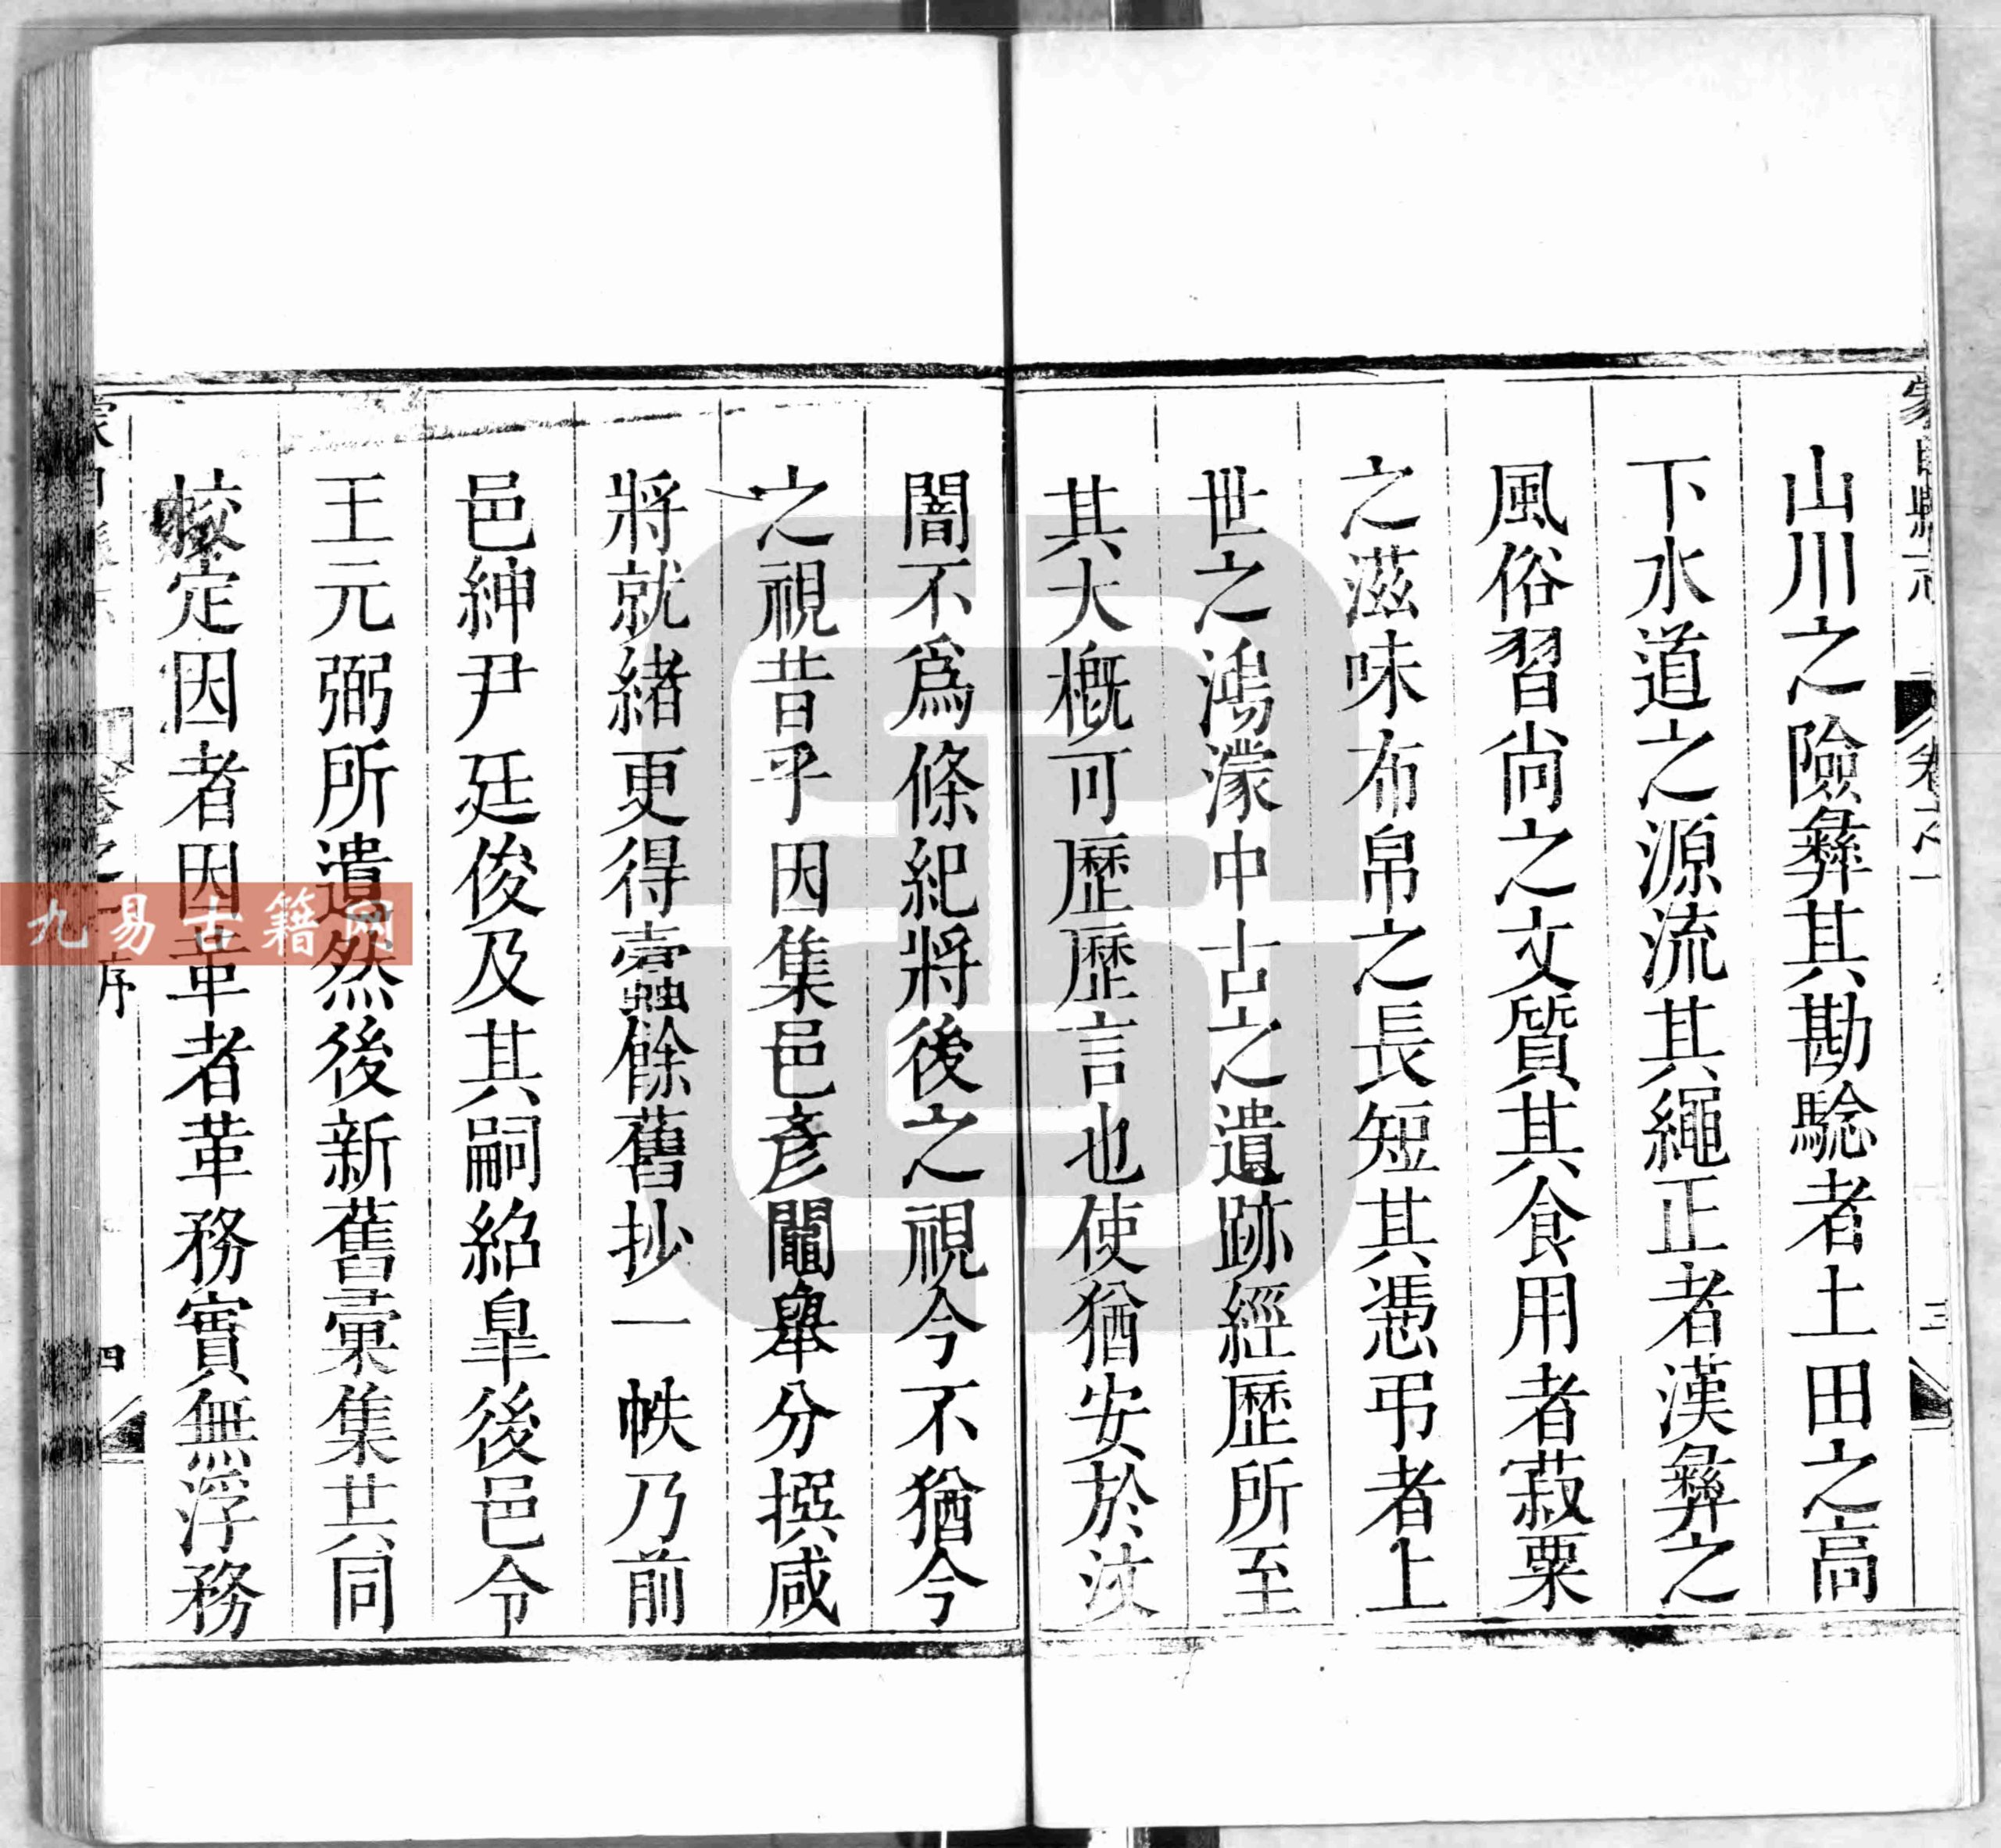 山川之險彝其勘騐者土田之高
下水道之源流其繩正者漢彝之
風俗習尚之文質其食用者菽粟
之滋味布帛之長短其憑弔者上
世之鴻濛中古之遺跡經歷所至
其大槪可歷歷言也使猶安於汶
闇不爲條紀將後之視今不猶今
之視昔乎因集邑彥鬮舉分撰咸
將就緒更得蠹餘舊抄一帙乃前
邑紳尹廷俊及其嗣紹皐後邑令
王元弼所遺然後新舊彙集共同
較定因者因革者革務實無浮務
序
四
九易古籍网